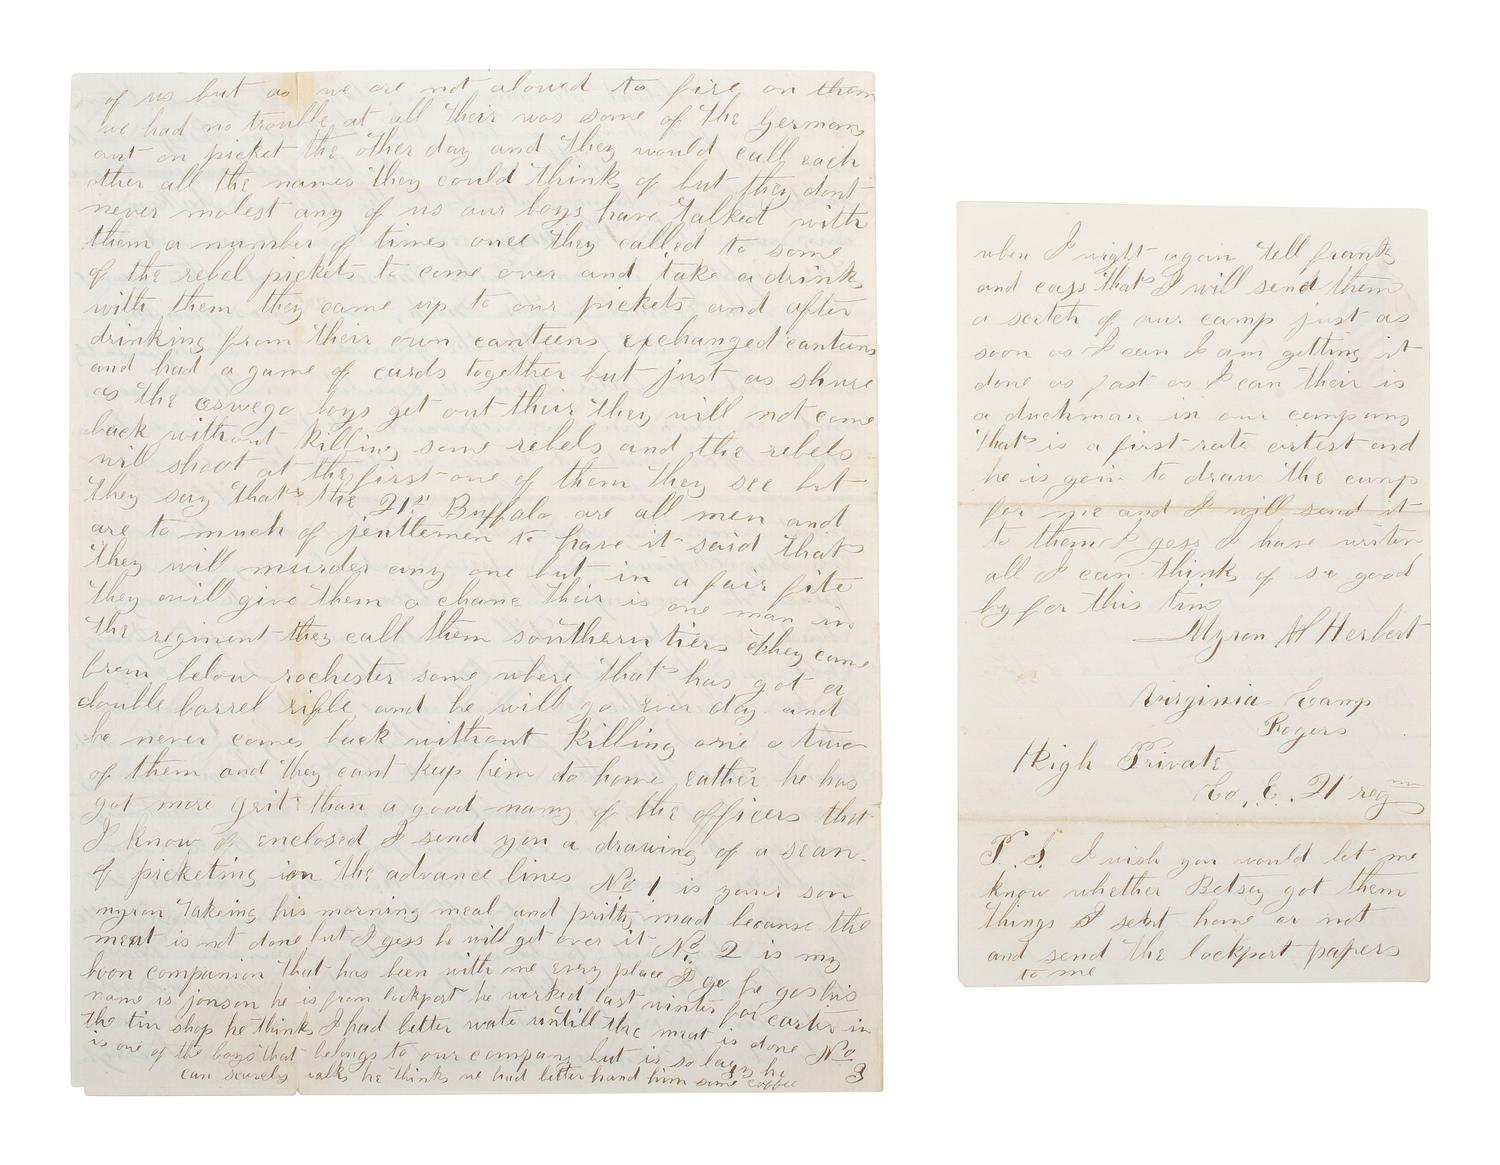 of us but as we are not alowed to fire on them
we had no trouble at all their was some of the Germans
out on picket the other day and they would call each
other all the names they could think of but they dont
never molest any of us our boys have talked with
them a number of times once they called to some
of the rebel pickets to come over and take a drink
with them they came up to our pickets and after
drinking from their own canteens exchanged canteens
and had a game of cards together but just as shure
as the oswego boys get out their they will not come
back without killing some rebels and the rebels
will shoot at the first one of them they see but
they say that the 21st Buffalo are all men and
are to much of jentlemen to have it said that
they will murder any one but in a fair fite
they will give them a chanc their is one man in
the regiment they call them southern tiers they came
from below rochester some where that has got a
double barrel rifle and he will go ever day and
he never comes back without killing one a two
of them and they cant keep him to home eather he has
got more grit than a good many of the officers that
I know of enclosed I send you a drawing of a sean
of picketing in the advance lines No 1 is your son
myron takeing his morning meal and pritty mad because the
meat is not done but I gess he will get over it No. 2 is my
boon companion that has been with me every place I go he gos his
name is jonson he is from lockport he worked last winter for carter in
the tin shop he thinks I had better wate untill the meat is done No
is one of the boys that belongs to our company but is so lazy he 3
can scarsely walk he thinks we had better hand him some coffee
when I night again tell frank
and cass that I will send them
a scetch of our camp just as
soon as I can I am getting it
done as fast as I can their is
a duchman in our company
that is a first rate artest and
he is goin to draw the camp
for me and I will send it
to them I gess I have writen
all I can think of so good
by for this tim
Myron H Herbert
Virginia Camp
Rogers
High Private
Co. E. 21 regmn
P. S. I wish you would let me
know whether Betsey got them
things I sent home or not
and send the lockport papers
to me